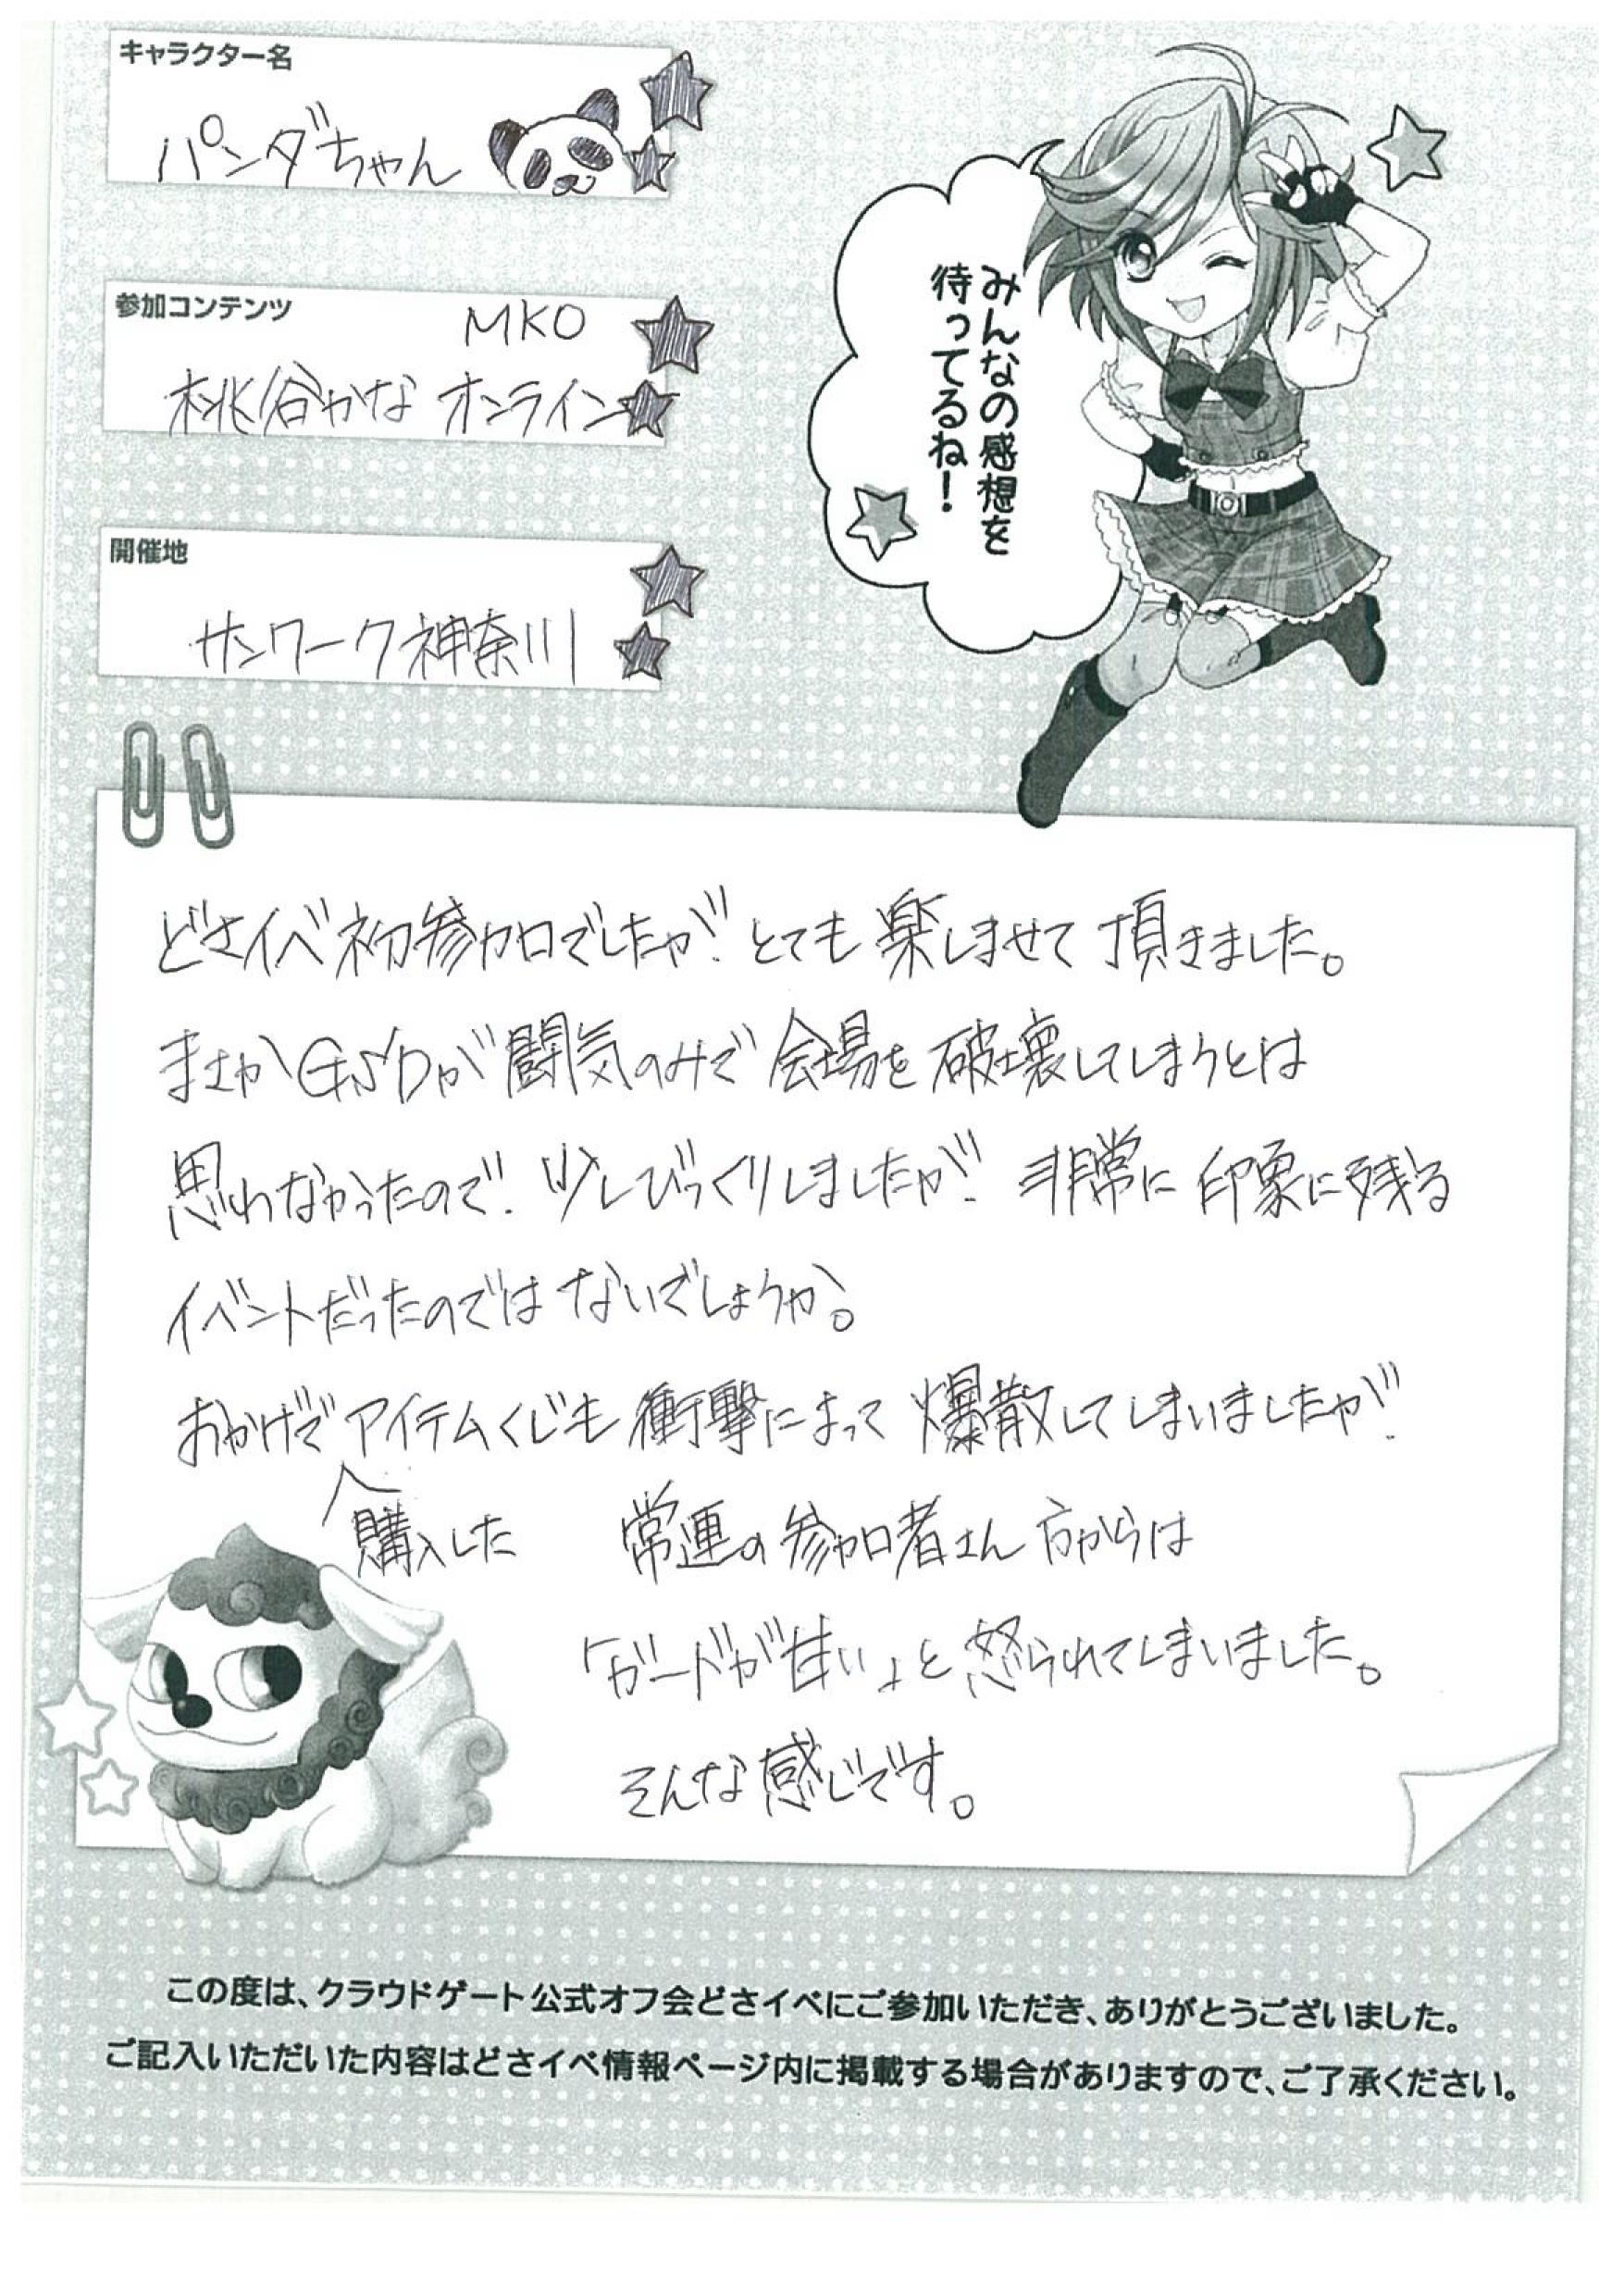 キャラクター名
パンダちゃん
参加コンテンツ
MKO
桃谷かなオンライン
開催地
サンワーク神奈川
みんなの感想を
待ってるね!
どさイベ初参加でしたが、とても楽しませて頂きました。
まさかGSDが闘気のみで会場を破壊してしまうとは
思わなかったので、少しびっくりしましたが、非常に印象に残る
イベントだったのではないでしょうか。
おかげでアイテムくじも衝撃によって爆散してしまいましたが、
購入した 常連の参加者さん方からは
「ガードが甘い」と怒られてしまいました。
そんな感じです。
この度は、クラウドゲート公式オフ会どさイベにご参加いただき、ありがとうございました。
ご記入いただいた内容はどさイベ情報ページ内に掲載する場合がありますので、ご了承ください。